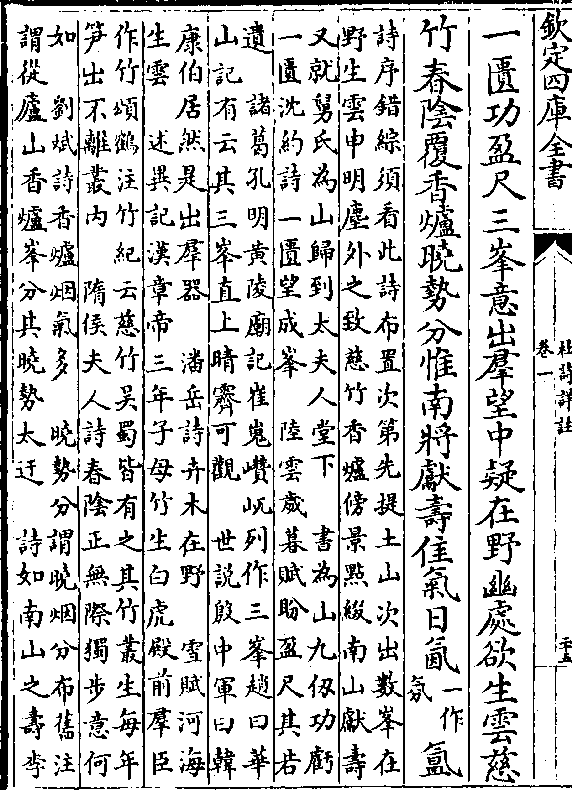 欽定四庫全書
杜詩詳註
卷一
二十五
一匱功盈尺三峯意出羣望中疑在野幽處欲生雲慈
竹春陰覆香爐曉勢分惟南將獻壽佳氣日氤一作氛氲
詩序錯綜須看此詩布置次第先提土山次出數峯在
野生雲申明塵外之致慈竹香爐傍景點綴南山獻壽
又就舅氏為山歸到太夫人堂下 書為山九仭功虧
一匱沈約詩一匱望成峯 陸雲歲暮賦盼盈尺其若
遺 諸葛孔明黃陵廟記崔嵬巑岏列作三峯趙曰華
山記有云其三峯直上晴霽可觀 世說殷中軍曰韓
康伯居然是出羣器 潘岳詩卉木在野 雪賦河海
生雲 述異記漢章帝三年子母竹生白虎殿前羣臣
作竹頌鶴注竹紀云慈竹吳蜀皆有之其竹叢生每年
笋出不離叢内 隋侯夫人詩春陰正無際獨步意何
如 劉斌詩香爐烟氣多 曉勢分謂曉烟分布舊注
謂從廬山香爐峯分其曉勢太迂 詩如南山之壽李